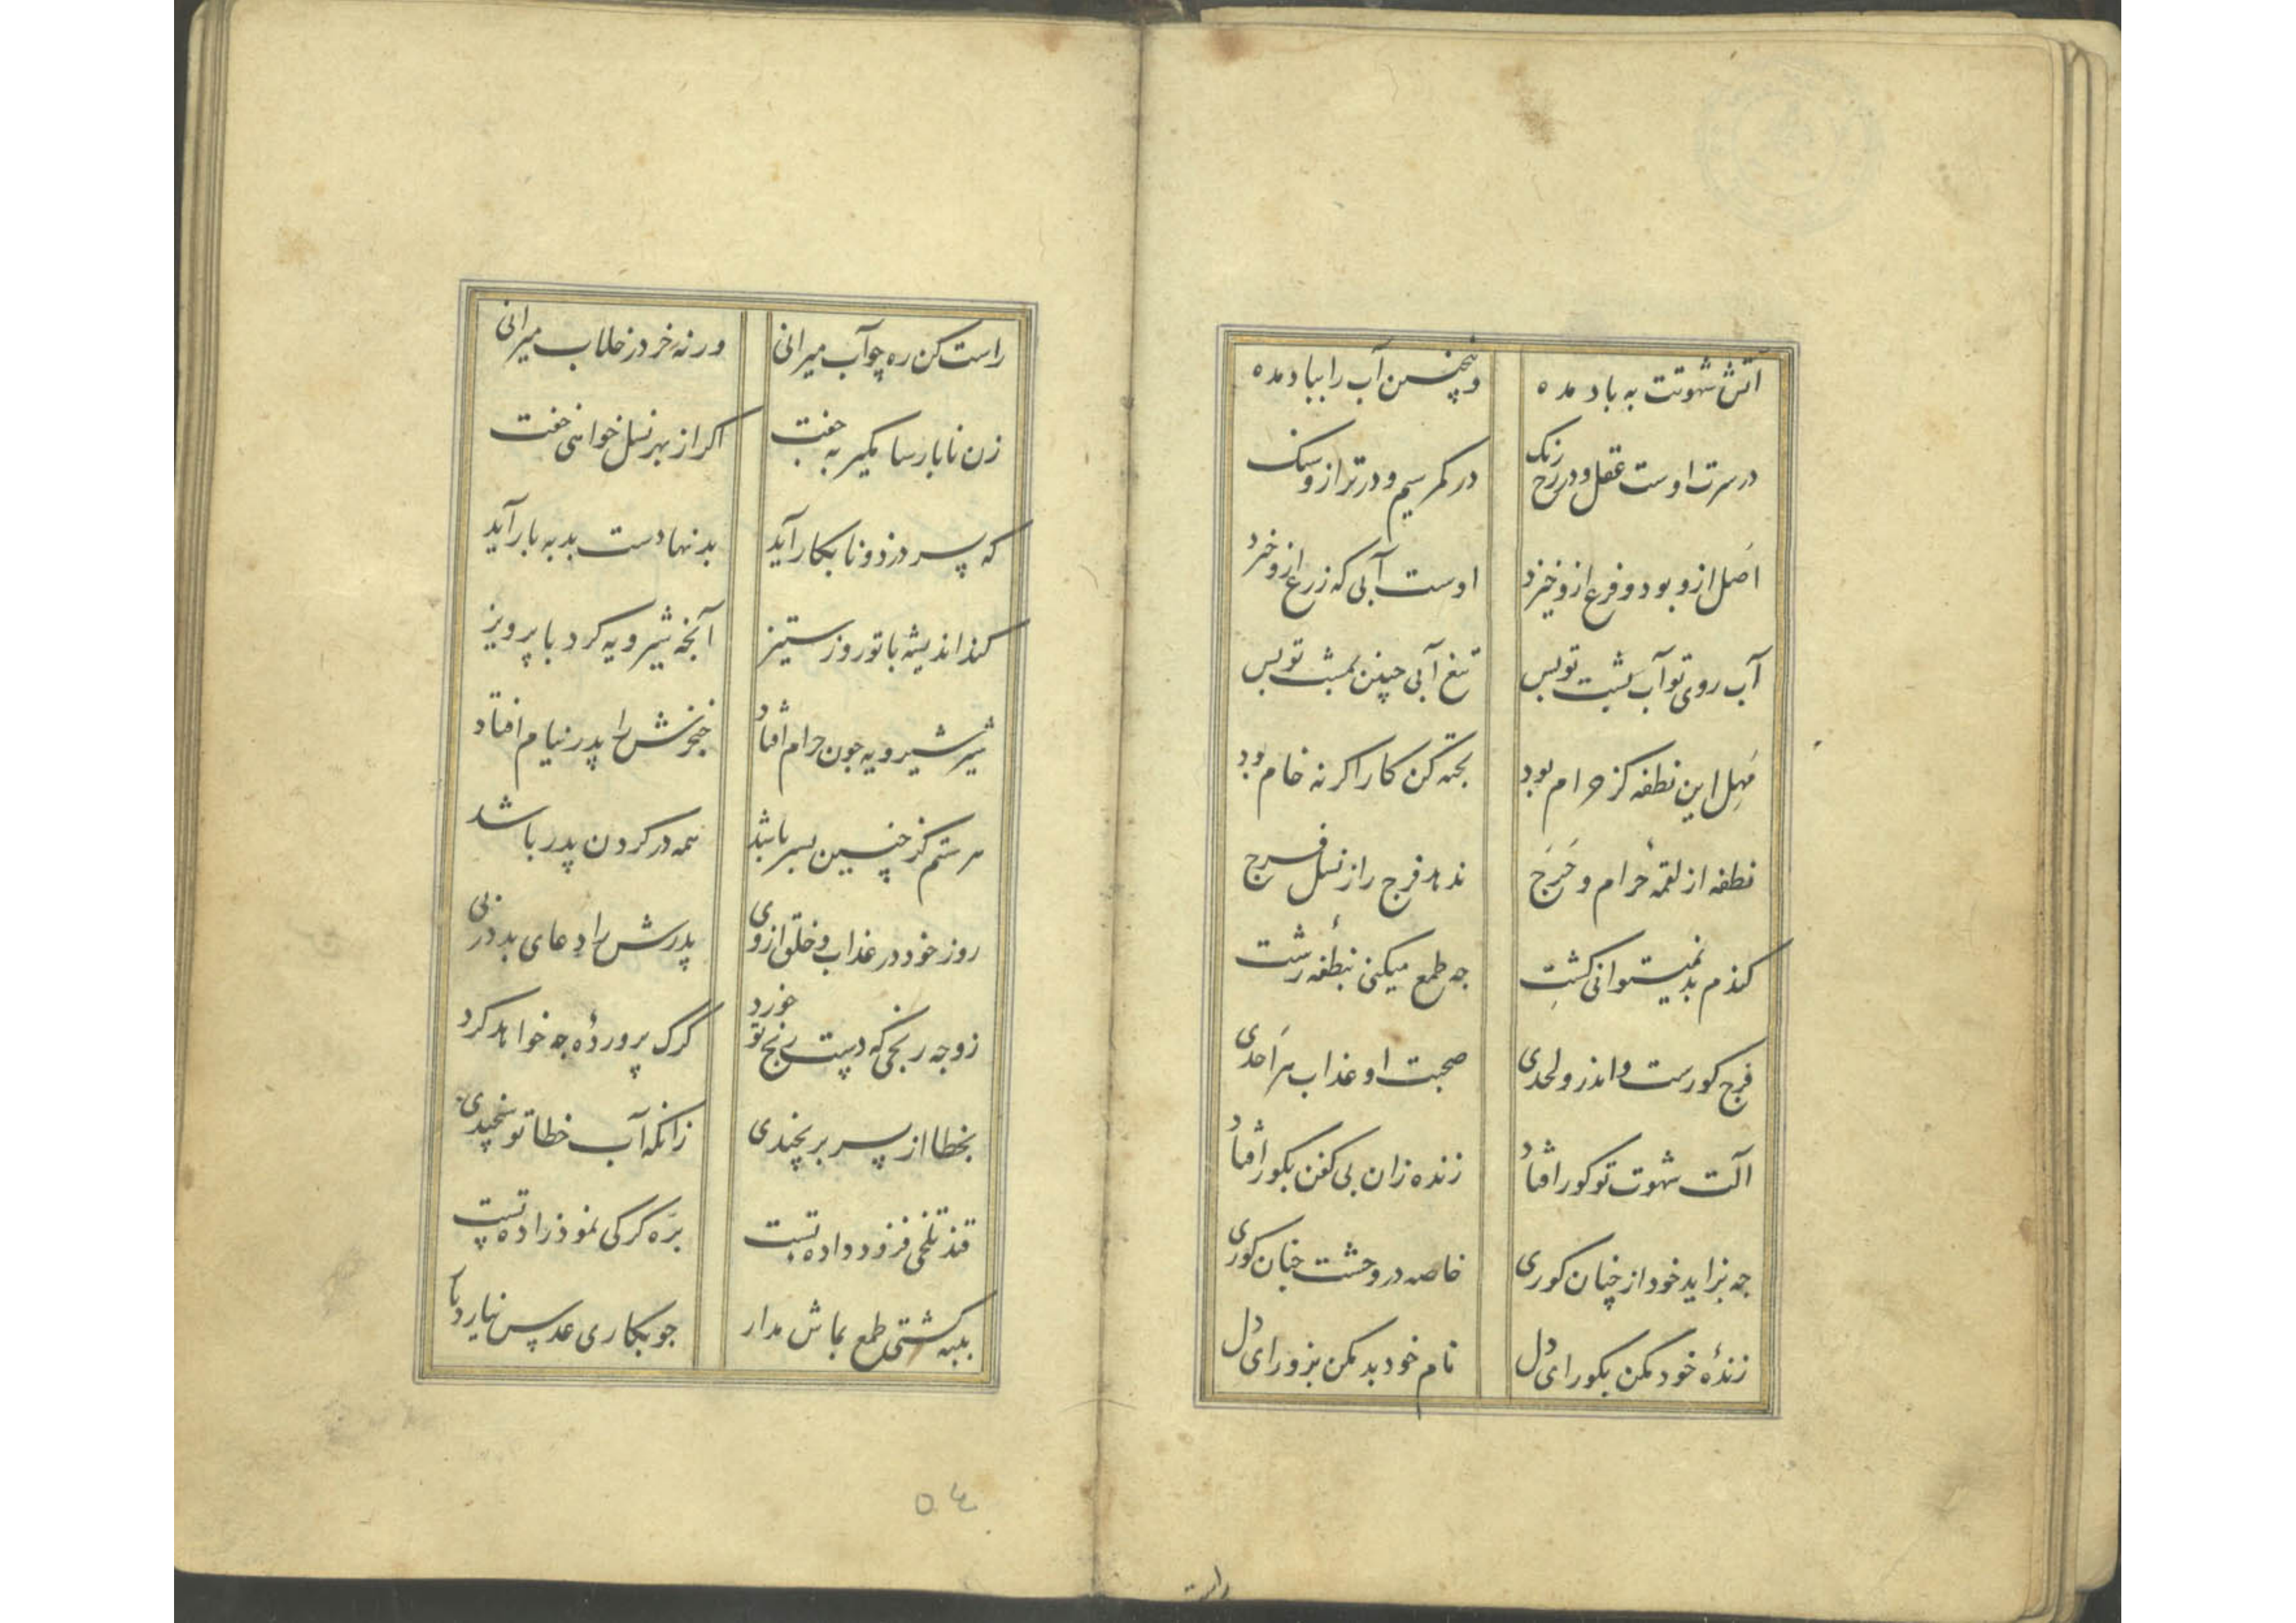 آتش شهوتت به باد مده وینچنین آب را بباد مده
در سرت اوست عقل و در رخ رنک در کمر سیم و در ترازو سنک
اصل ازو بود و فرع ازو خیزد اوست آبی که زرع ازو خیزد
آب روی تو آب پشت تو بس تیغ آبی چنین بمشت تو بس
مهل این نطفه کز حرام بود پخته کن کار اکر نه خام بود
نطفه از لقمهٔ حرام و حرج ندهد فرج را ز نسل فرج
کندم بد نمیتوانی کشت چه طمع میکنی بنطفهٔ زشت
فرج کورست و اندرو لحدی صحبت او عذاب هر احدی
آلت شهوت تو کور افتاد زنده زان بی کفن بکور افتاد
چه بزاید خود از چنان کوری خاصه در وحشت چنان کوری
زندهٔ خود مکن بکور ای دل نام خود بد مکن بزور ای دل
راست
راست کن ره چو آب میرانی ورنه خر در خلاب میرانی
زن ناپارسا مکیر به جفت اکر از بهر نسل خواهی خفت
که پسر دزد و نابکار آید بد نهادست بد به بار آید
کند اندیشه با تو روز ستیز آنچه شیرویه کرد با پرویز
شیر شیرویه چون حرام افتاد خنجرش را پدر نیام افتاد
هر ستم کز چنین پسر باشد همه در کردن پدر باشد
روز خود در عذاب و خلق از وی پدرش را دعای بد در پی
زو چه رنجی که دست رنج تو خورد کرک پروردهٔ چه خواهد کرد
بخطا از پسر برنجیدی زانکه آب خطا تو سنجیدی
قند تلخی فزود دادهٔ تست بره کرکی نمود زادهٔ تست
پنبه کشتی طمع بماش مدار جو بکاری عدس نیارد بار
٥٤